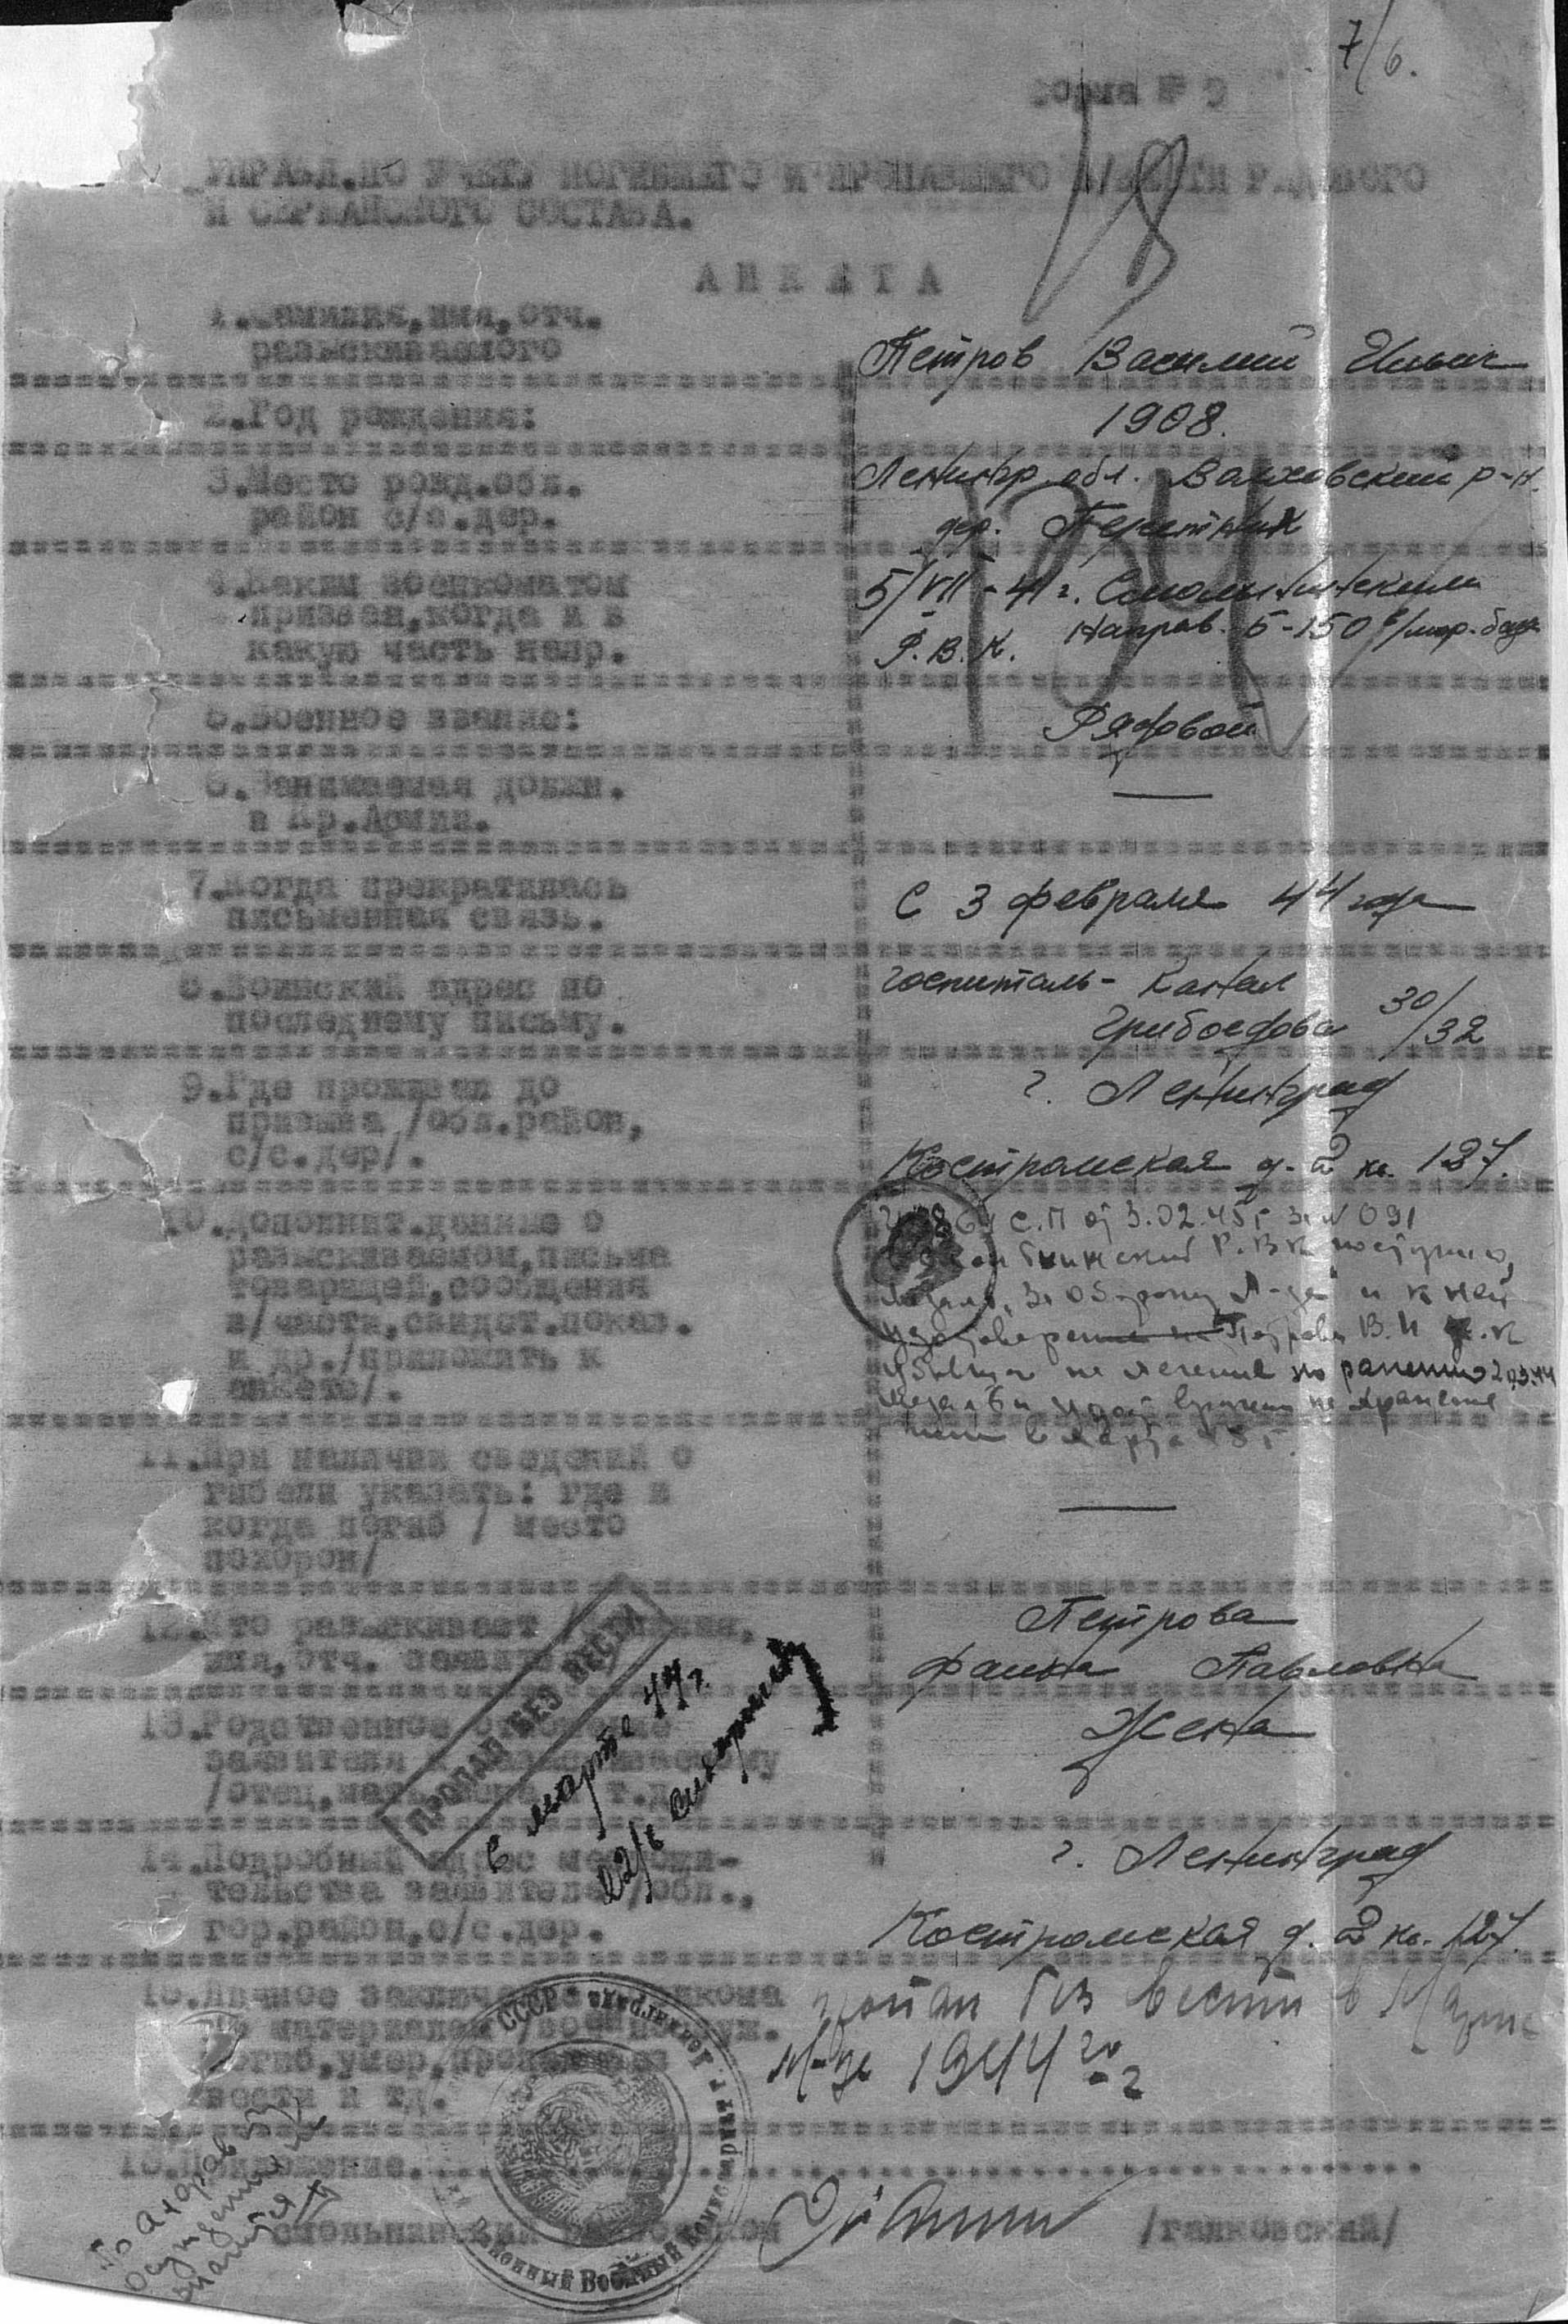 7/6.
Форма № 9
УПРАВЛ.ПО УЧЕТУ ПОГИБШЕГО И ПРОПАВШЕГО Б/ВЕСТИ РЯДОВОГО
И СЕРЖАНСКОГО СОСТАВА.
АНКЕТА
1.Фамилия,имя,отч.
разыскиваемого
Петров Василий Ильич
2.Год рождения:
1908.
3.Место рожд.обл.
район с/с.дер.
Ленингр. обл. Волховский р-н.
дер.
4.Каким военкоматом
призван,когда и в
какую часть напр.
5/VII-41 г. Смольнинским
Р.В.К. Направ. 5-150
5.Военное звание:
Рядовой
6.Занимаемая должн.
в Кр.Армии.
—
7.Когда прекратилась
письменная связь.
С 3 февраля 44 года
8.Воинский адрес по
последнему письму.
госпиталь - Канал
Грибоедова 30/32
9.Где проживал до
призыва /обл.район,
с/с.дер/.
г. Ленинград
Костромская д. 2 кв. 127.
10.Дополнит.данные о
разыскиваемом,письма
товарищей,сообщения
в/части,свидет.показ.
и др./приложить к
анкете/.
С.П от 3.02.45 г за № 091
Р.В.К
и к ней
Петрова В.И т.к
убывш на лечение по ранению
на хранение
11.При наличии сведений о
гибели указать: где и
когда погиб / место
похорон/
—
12.Кто разыскивает /фамилия,
имя,отч. заявителя/
Петрова
Фаина Павловна
13.Родственное отношение
заявителя к разыскиваемому
/отец,мать,жена и т.д.
Жена
ПРОПАЛ БЕЗ ВЕСТИ
в марте 44 г.
14.Подробный адрес местожи-
тельства заявителя /обл.,
гор.район,с/с.дер.
г. Ленинград
Костромская д. 2 кв. 127.
15.Личное заключение военкома
по материалам /
погиб,умер,пропал без
вести и тд.
пропал без вести в Марте
м-це 1944 го г
16.Приложение.
СССР
Районный Военный Комиссариат г. Ленинграда
Смольнинский райвоенком
/галковский/